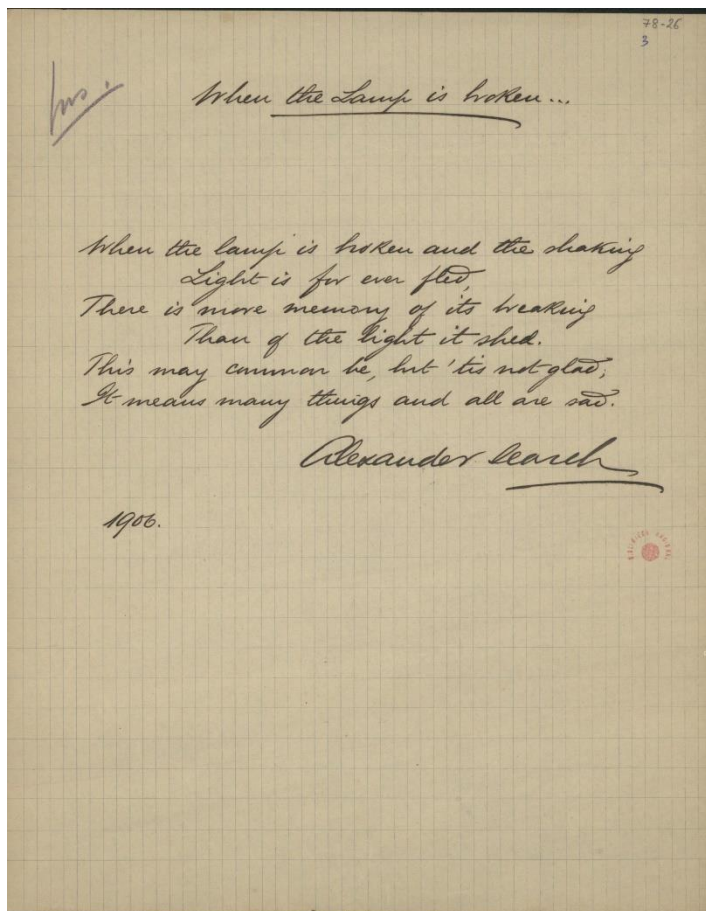 78-26
3
When the Lamp is broken...
When the lamp is broken and the shaking
Light is for ever fled,
There is more memory of its breaking
Than of the light it shed.
This may common be, but 'tis not glad;
It means many things and all are sad.
Alexander Search
1906.